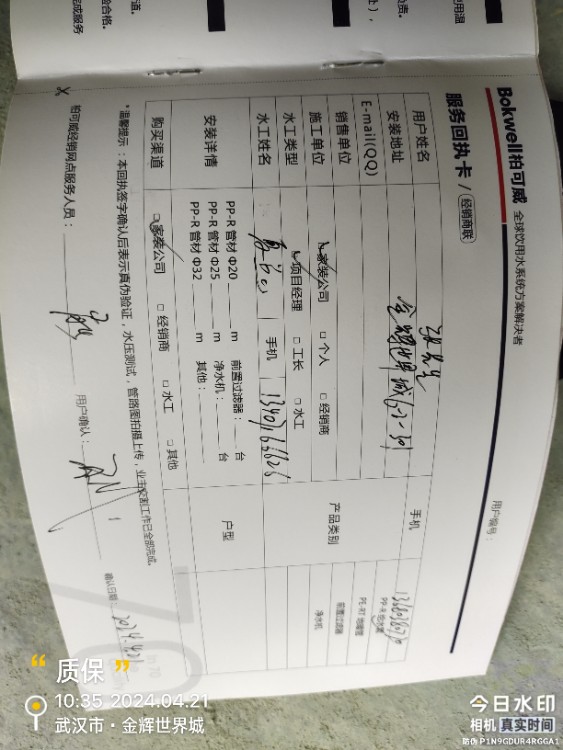 Bokwell柏可威 全球饮用水系统方案解决者
服务回执卡 / 经销商联
用户编号：
用户姓名
手机
安装地址 金辉世界城6-2-301
E-mail(QQ)
产品类别
PP-R 给水管
PE-RT 地暖管
前置过滤器
净水机
销售单位
施工单位 □家装公司 □个人 □经销商
水工类型 □项目经理 □工长 □水工
水工姓名 手机
安装详情
PP-R 管材 Φ20 m 前置过滤器： 台
PP-R 管材 Φ25 m 净水机： 台
PP-R 管材 Φ32 m 其他：
户型
购买渠道 □家装公司 □经销商 □水工 □其他
*温馨提示：本回执签字确认后表示真伪验证，水压测试，管路图拍摄上传，业主交割工作已全部完成。
柏可威经销网点服务人员：
用户确认：
确认日期：
“质保”
10:35 2024.04.21
武汉市·金辉世界城
今日水印
相机 真实时间
防伪 P1N9GDUR4RGGA1